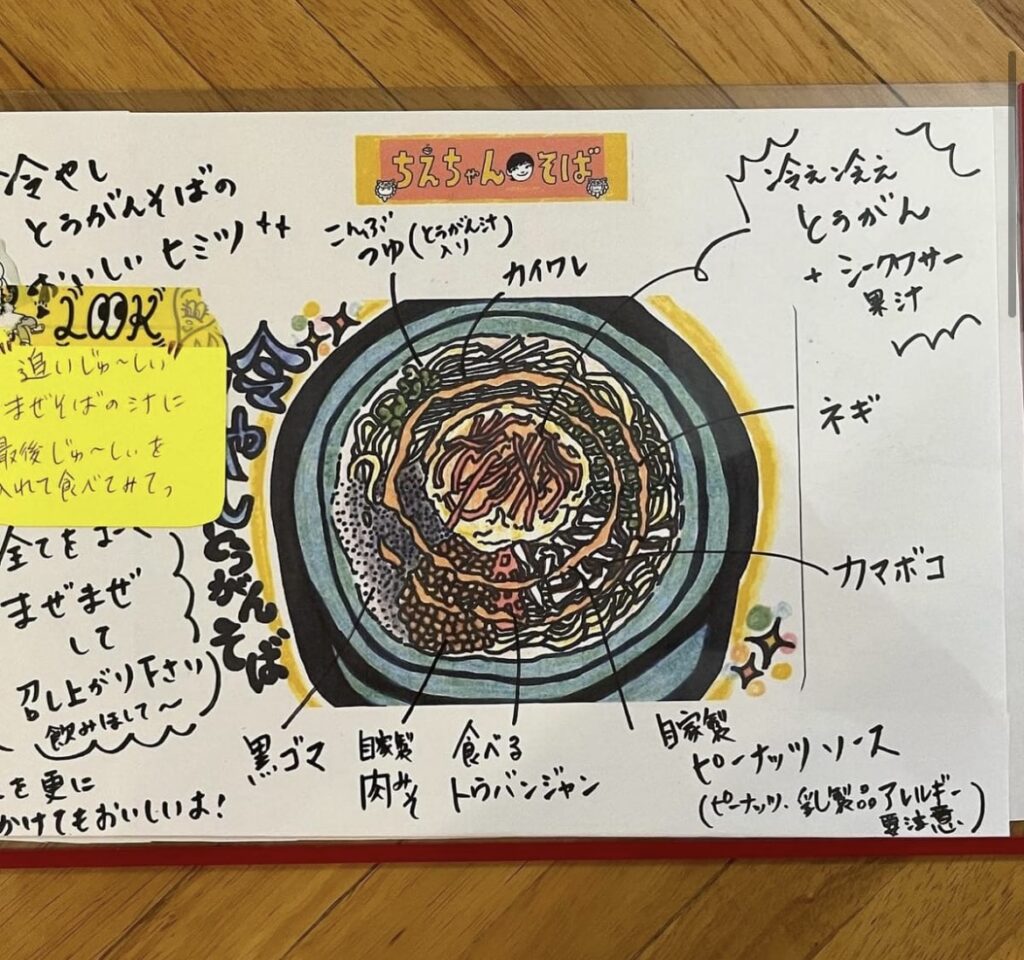 ちえちゃんそば
冷やし
とうがんそばの
おいしいヒミツ++
LOOK
追いじゅ〜しぃ
まぜそばの汁に
最後じゅ〜しぃを
入れて食べてみてっ
全てを
まぜまぜ
して
召し上がり下さい
飲みほして〜
を更に
かけてもおいしいよ!
冷やしとうがんそば
こんぶ
つゆ(とうがん汁入り)
カイワレ
冷え冷え
とうがん
+シークワサー
果汁
ネギ
カマボコ
黒ゴマ
自家製
肉みそ
食べる
トウバンジャン
自家製
ピーナッツソース
(ピーナッツ、乳製品アレルギー
要注意、)